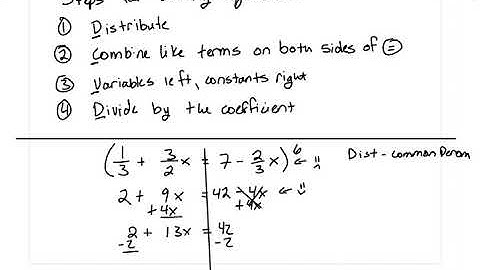 ① Distribute
② Combine like terms on both sides of =
③ Variables left, constants right
④ Divide by the coefficient
(1/3 + 3/2 x = 7 - 2/3 x) 6 ← ::
Dist - common Denom
2 + 9x = 42 - 4x ← :)
+4x +4x
2 + 13x = 42
-2 -2